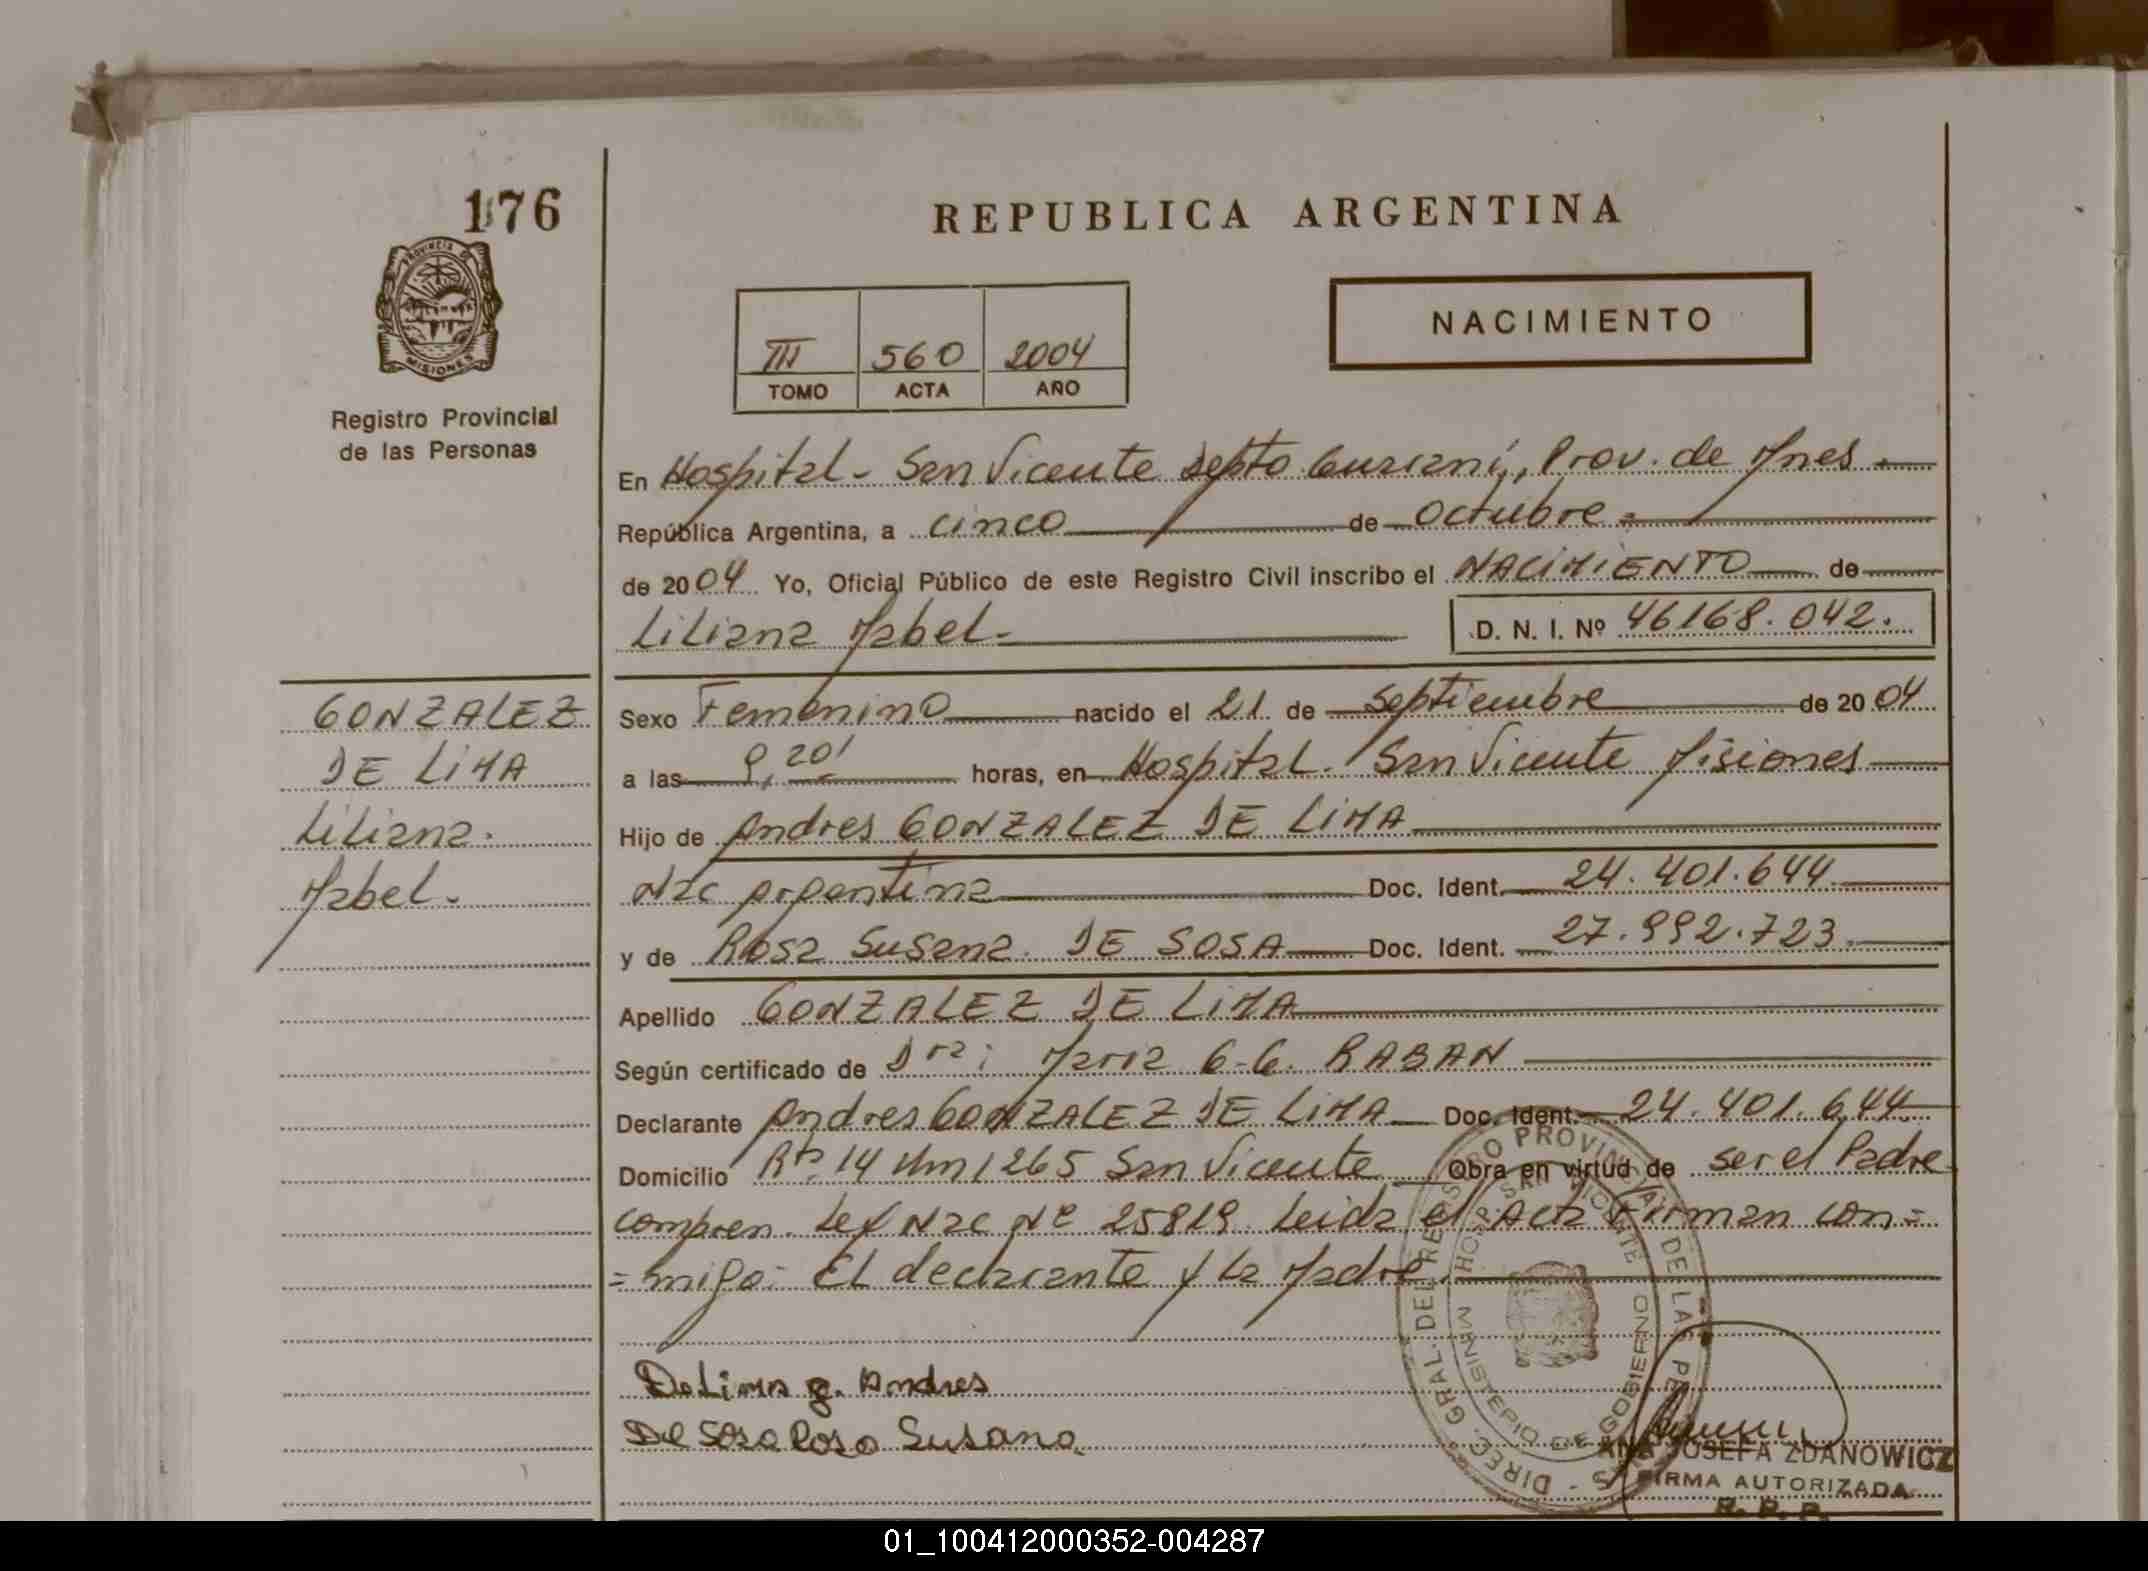 176
REPUBLICA ARGENTINA
NACIMIENTO
III 560 2004
TOMO ACTA AÑO
PROVINCIA
MISIONES
Registro Provincial
de las Personas
En Hospital - San Vicente Depto Guarani, Prov. de Mnes -
República Argentina, a cinco de Octubre =
de 2004 Yo, Oficial Público de este Registro Civil inscribo el NACIMIENTO de
Liliana Mabel -
D. N. I. Nº 46168.042.
GONZALEZ
DE LIMA
Liliana.
Mabel.
Sexo Femenino nacido el 21 de Septiembre de 2004
a las 9,20' horas, en Hospital. San Vicente Misiones
Hijo de Andres GONZALEZ DE LIMA
Nac Argentina Doc. Ident. 24.401.644
y de Rosa Susana. DE SOSA Doc. Ident. 27.992.723.
Apellido GONZALEZ DE LIMA
Según certificado de Dra: Maria G-G. RABAN
Declarante Andres GONZALEZ DE LIMA Doc. Ident. 24.401.644
Domicilio Rta 14 Km 1265 San Vicente Obra en virtud de ser el Padre
compren. Ley Nac Nº 25819. Leida el Acta Firman con=
=migo: El declarante y la Madre.
De Lima g. Andres
De Sosa Rosa Susana
DIREC. GRAL. DEL REGISTRO PROVINCIAL DE LAS PERSONAS
HOSP. SAN VICENTE
MINISTERIO DE GOBIERNO
ANA JOSEFA ZDANOWICZ
FIRMA AUTORIZADA
R. P. P.
01_100412000352-004287